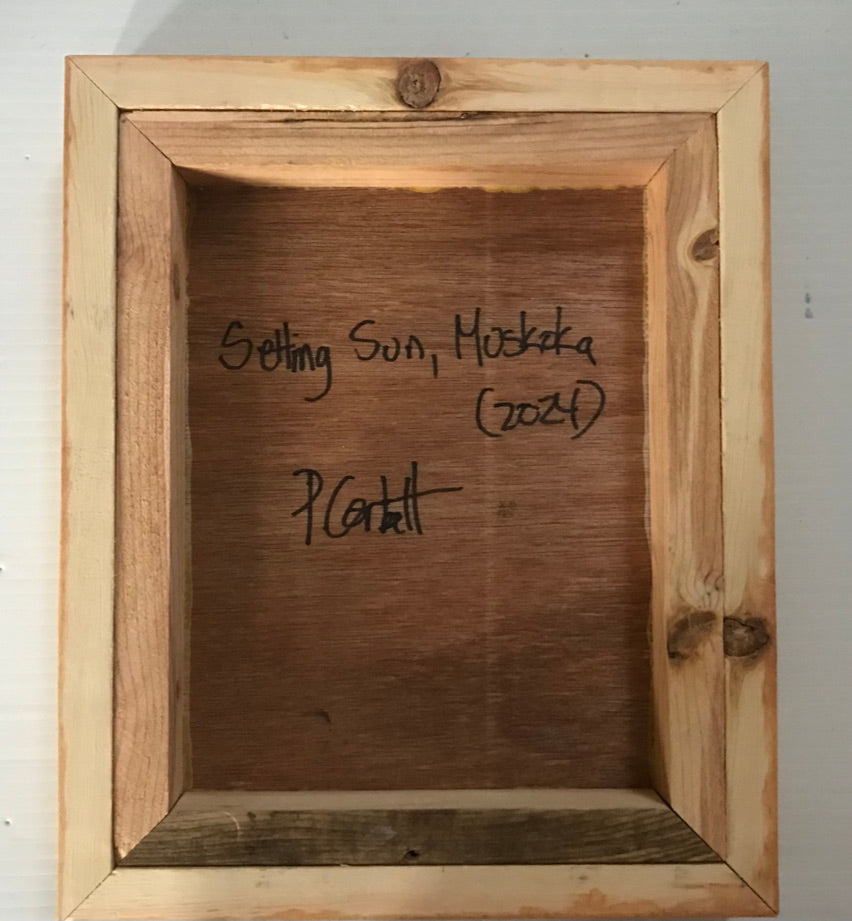 Setting Sun, Muskoka
(2024)
P Corbett